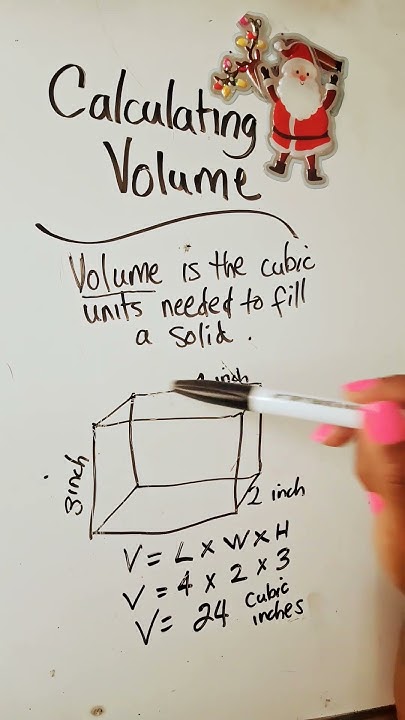 Calculating
Volume
Volume is the cubic
units needed to fill
a solid.
inch
3 inch
2 inch
V = L x W x H
V = 4 x 2 x 3
V = 24 cubic
inches